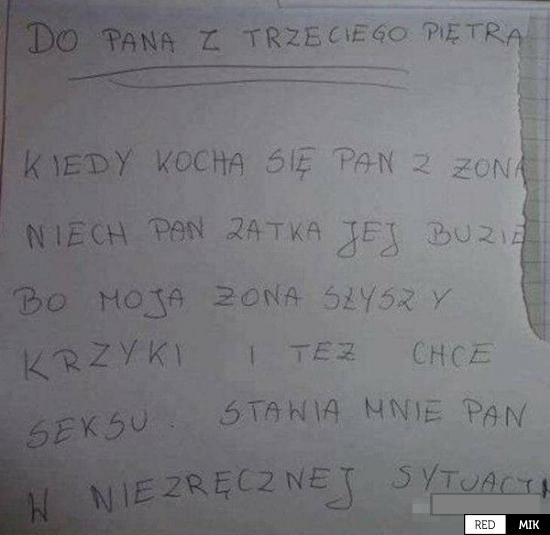 DO PANA Z TRZECIEGO PIĘTRA
KIEDY KOCHA SIĘ PAN Z ZONA
NIECH PAN ZATKA JEJ BUZIE
BO MOJA ZONA SŁYSZY
KRZYKI I TEZ CHCE
SEKSU. STAWIA MNIE PAN
W NIEZRĘCZNEJ SYTUACJI
RED MIK